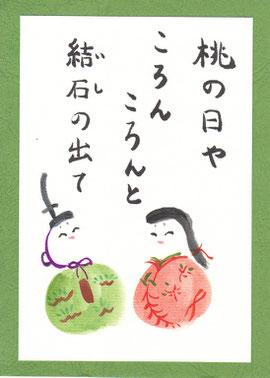 桃の日や
ころん
ころんと
結石の出て
いし